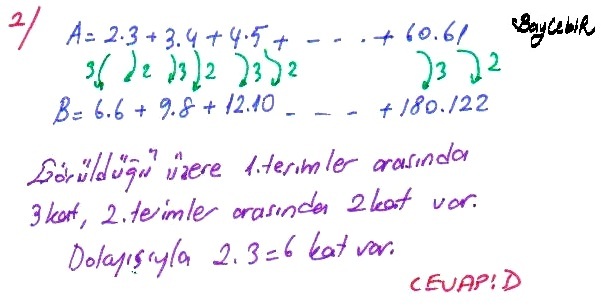 2) A = 2.3 + 3.4 + 4.5 + - - . . + 60.61 BayCebiR
3 2 3 2 3 2 3 2
B = 6.6 + 9.8 + 12.10 - - - + 180.122
Görüldüğü üzere 1.terimler arasında
3 kat, 2.terimler arasında 2 kat var.
Dolayısıyla 2.3=6 kat var.
CEVAP: D